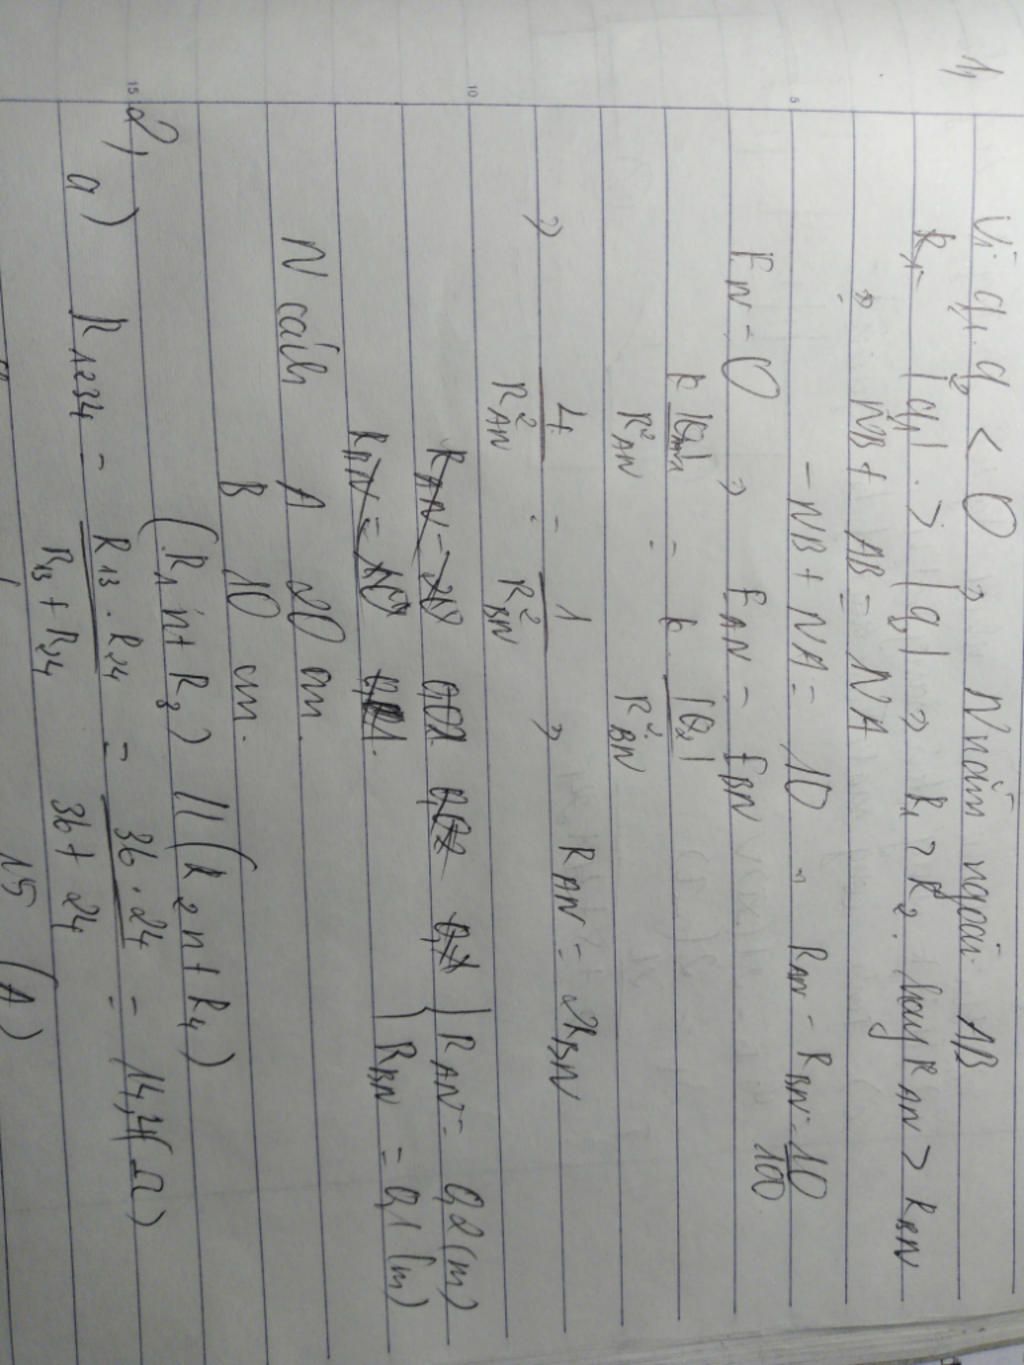 1,
Vì q₁.q₂ < 0 => N nằm ngoài AB
|q₁| > |q₂| => R₁ > R₂. hay R_AN > R_BN
=> NB + AB = NA
- NB + NA = 10 => R_AN - R_BN = 10/100
5
E_N = 0 => E_AN = E_BN
k |Q₁|/R²_AN = k |Q₂|/R²_BN
=> 4/R²_AN = 1/R²_BN => R_AN = 2R_BN
10
R_AN = 0,2 (m)
R_BN = 0,1 (m)
N cách A 20 cm.
B 10 cm.
2,
(R₁ nt R₃) // (R₂ nt R₄)
15
a) R₁₂₃₄ = R₁₃.R₂₄/(R₁₃ + R₂₄) = 36.24/(36 + 24) = 14,4 (Ω)
15 (A)